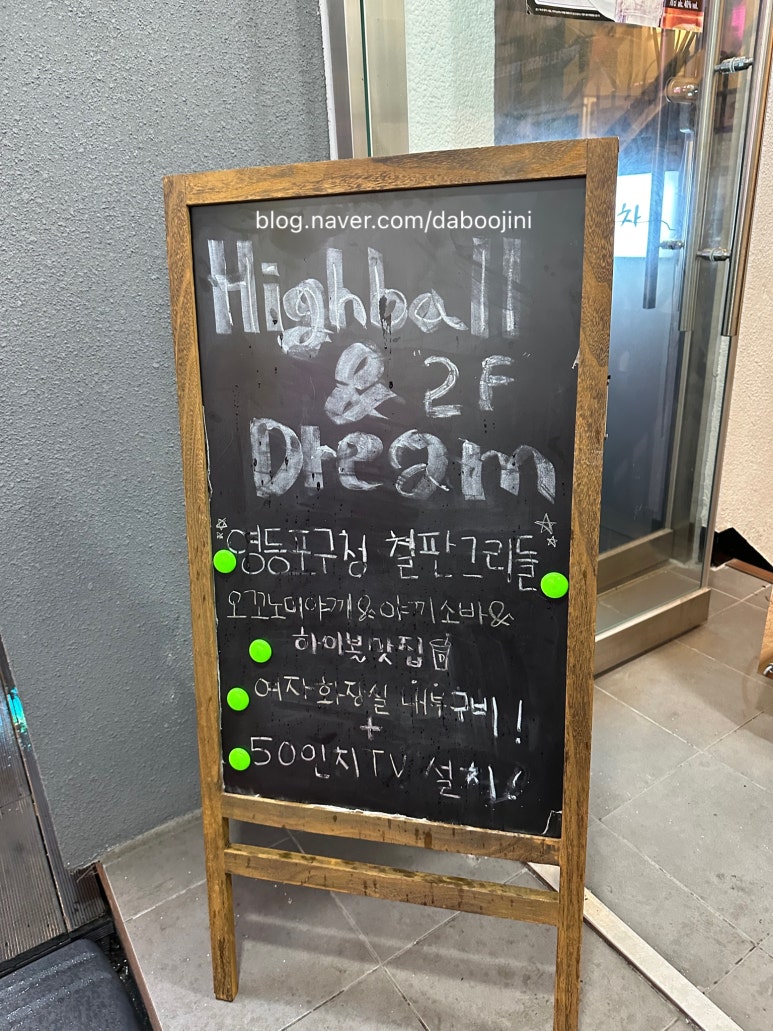 blog.naver.com/daboojini
Highball
& "2F
Dream
영등포구청 철판그리들
오꼬노미야끼&야끼소바&
하이볼맛집
여자화장실 내부구비!
+
50인치TV 설치!